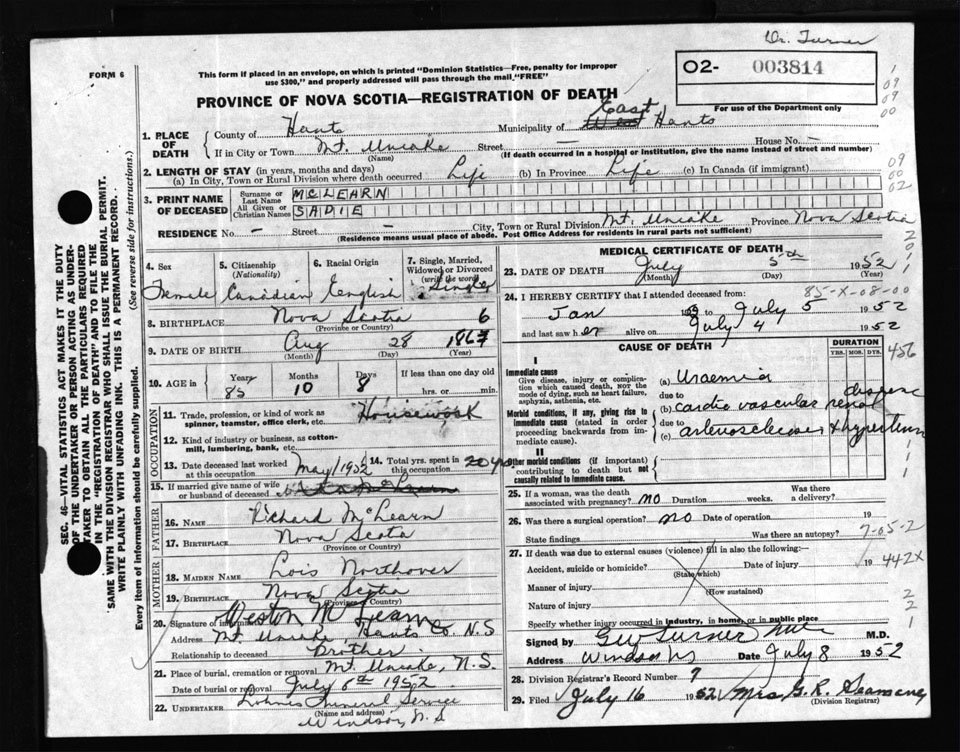 Dr. Turner
FORM 6
This form if placed in an envelope, on which is printed "Dominion Statistics—Free, penalty for improper
use $300," and properly addressed will pass through the mail "FREE"
PROVINCE OF NOVA SCOTIA—REGISTRATION OF DEATH
02- 003814
For use of the Department only
1. PLACE OF DEATH
County of Hants Municipality of West East Hants
If in City or Town Mt. Uniake Street — House No. —
(Name) (If death occurred in a hospital or institution, give the name instead of street and number)
2. LENGTH OF STAY (in years, months and days)
(a) In City, Town or Rural Division where death occurred Life (b) In Province Life (c) In Canada (if immigrant)
3. PRINT NAME OF DECEASED
Surname or Last Name MCLEARN
All Given or Christian Names SADIE
RESIDENCE No. — Street — City, Town or Rural Division Mt. Uniake Province Nova Scotia
(Residence means usual place of abode. Post Office Address for residents in rural parts not sufficient)
4. Sex 5. Citizenship (Nationality) 6. Racial Origin 7. Single, Married, Widowed or Divorced (write the word)
Female Canadian English Single
8. BIRTHPLACE Nova Scotia
(Province or Country)
9. DATE OF BIRTH Aug 28
(Month) (Day) (Year)
10. AGE in Years Months Days If less than one day old
10 8 hrs. or min.
OCCUPATION
11. Trade, profession, or kind of work as spinner, teamster, office clerk, etc. Housework
12. Kind of industry or business, as cotton-mill, lumbering, bank, etc.
13. Date deceased last worked at this occupation May/1952 14. Total yrs. spent in this occupation 20 yrs
15. If married give name of wife or husband of deceased
FATHER
16. NAME Richard McLearn
17. BIRTHPLACE Nova Scotia
(Province or Country)
MOTHER
18. MAIDEN NAME Lois Northover
19. BIRTHPLACE Nova Scotia
(Province or Country)
20. Signature of informant Weston McLearn
Address Mt. Uniake, Hants Co. N.S
Relationship to deceased Brother
21. Place of burial, cremation or removal Mt. Uniake, N.S.
Date of burial or removal July 8th 1952
22. UNDERTAKER Lohnes Funeral Service
(Name and address)
Windsor, N.S
MEDICAL CERTIFICATE OF DEATH
23. DATE OF DEATH July 5th 1952
(Month) (Day) (Year)
85-X-08-00
24. I HEREBY CERTIFY that I attended deceased from:
Jan to July 5 1952
and last saw her alive on July 4 1952
CAUSE OF DEATH
DURATION
YRS. MOS. DYS.
456
I
Immediate cause
Give disease, injury or complication which caused death, NOT the mode of dying, such as heart failure, asphyxia, asthenia, etc.
(a) Uraemia
due to
Morbid conditions, if any, giving rise to immediate cause (stated in order proceeding backwards from immediate cause).
(b) cardio vascular renal disease
due to
(c) arteriosclerosis & hypertension
II
Other morbid conditions (if important) contributing to death but not causally related to immediate cause.
25. If a woman, was the death associated with pregnancy? no Duration weeks. Was there a delivery?
26. Was there a surgical operation? no Date of operation 19
State findings Was there an autopsy?
7-05-2
27. If death was due to external causes (violence) fill in also the following:—
Accident, suicide or homicide? Date of injury 19
(State which)
442X
Manner of injury
(How sustained)
Nature of injury
Specify whether injury occurred in industry, in home, or in public place
Signed by G W Turner M.D.
Address Windsor NS Date July 8 1952
28. Division Registrar's Record Number 9
29. Filed July 16 1952 Mrs. G. R. Seamaney
(Division Registrar)
SEC. 46—VITAL STATISTICS ACT MAKES IT THE DUTY
OF THE UNDERTAKER OR PERSON ACTING AS UNDER-
TAKER TO OBTAIN ALL THE PARTICULARS REQUIRED
IN THE "REGISTRATION OF DEATH" AND TO FILE THE
SAME WITH THE DIVISION REGISTRAR WHO SHALL ISSUE THE BURIAL PERMIT.
WRITE PLAINLY WITH UNFADING INK. THIS IS A PERMANENT RECORD.
Every item of information should be carefully supplied. (See reverse side for instructions.)